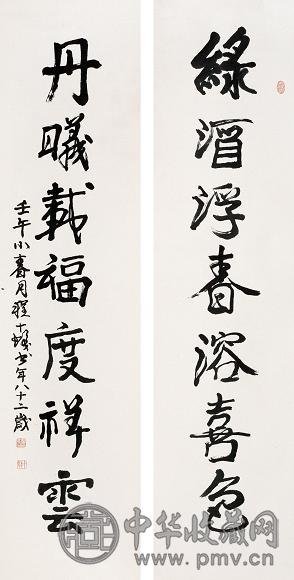 綠湄浮春溶喜色
丹曦載福度祥雲
壬午小春月程十髮书年八十二歲
中华收藏网
www.pmv.cn